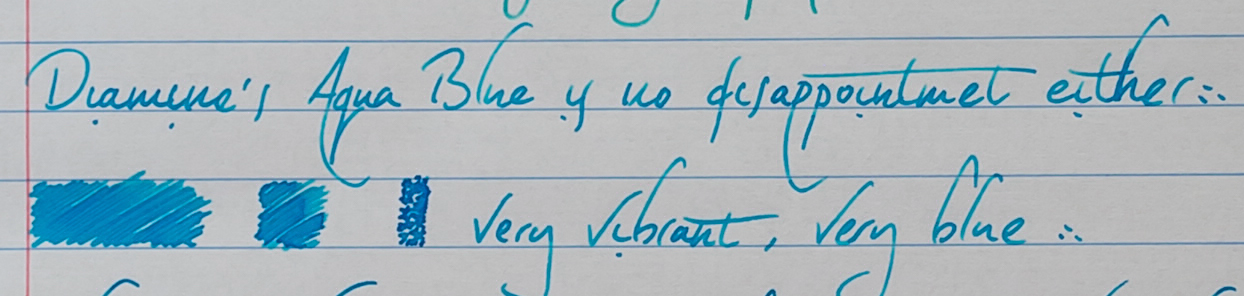 Diamine's Aqua Blue is no disappointmet either∴
Very vibrant, very blue ∴